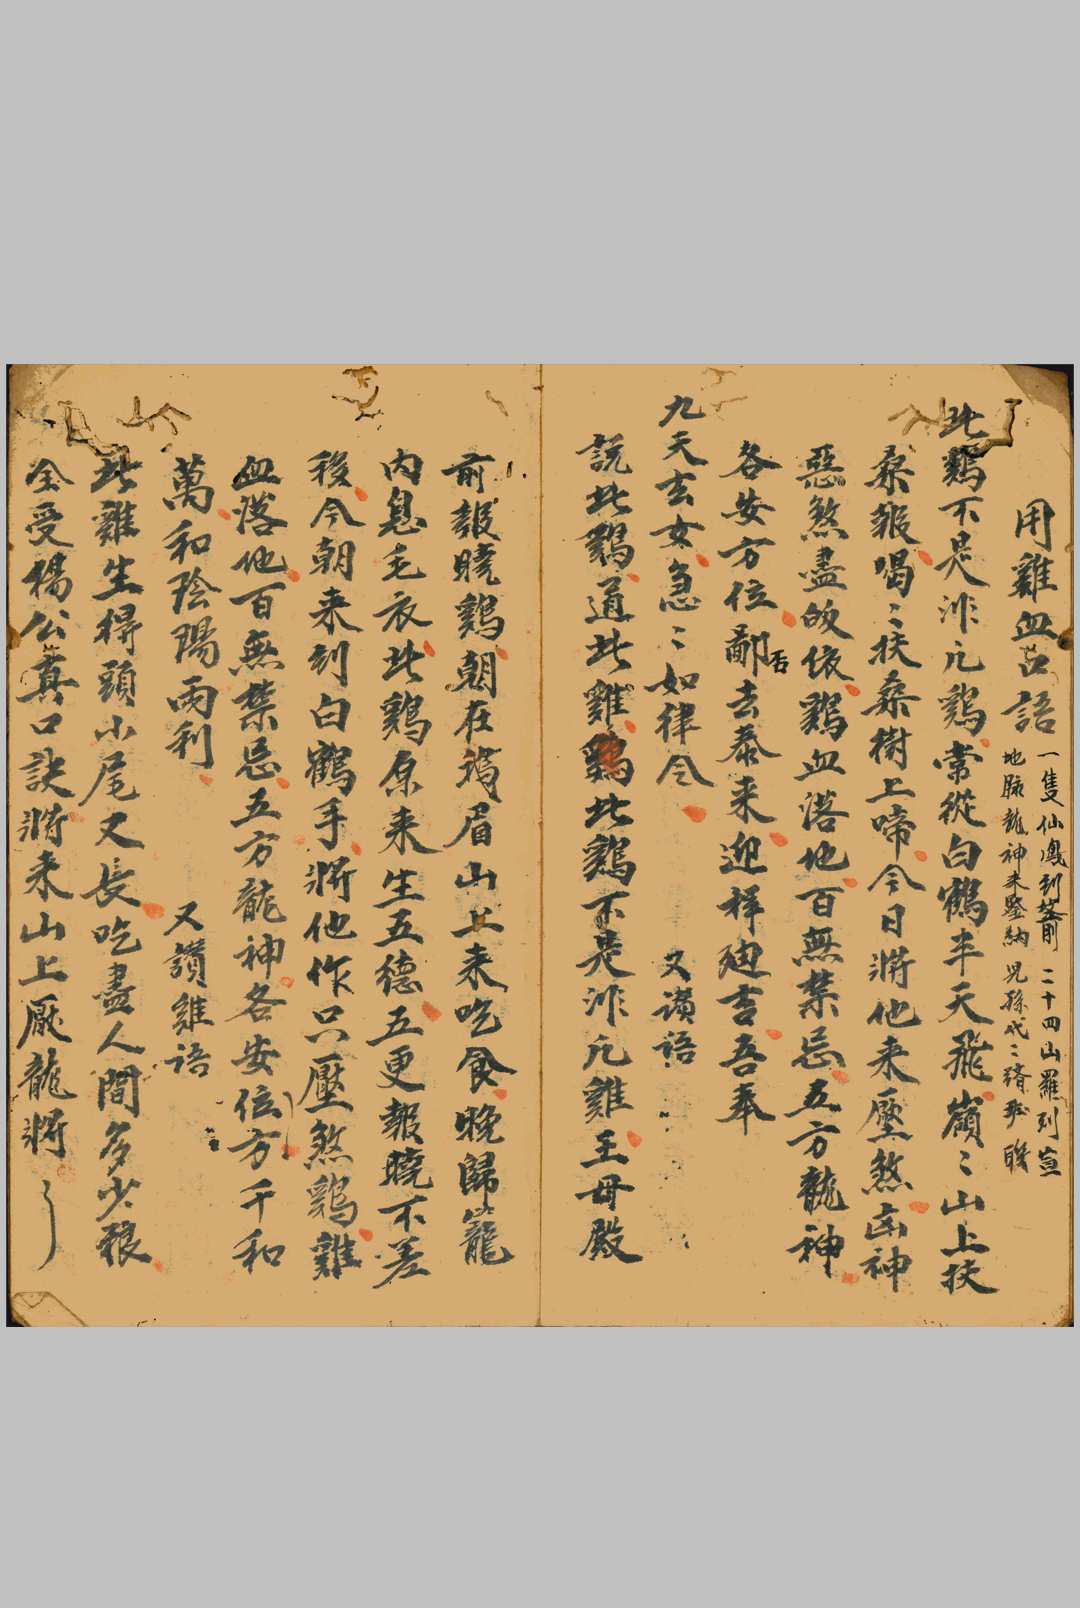 用雞血口語
一隻仙鳳到墳前 二十四山羅列宣
地脉龍神来鑒納 兒孫代〻
此鷄不是泎凡鷄常從白鶴半天飛嶺〻山上扶
桑報喝〻扶桑樹上啼今日將他来壓煞凶神
惡煞盡皈依鷄血落地百無禁忌五方龍神
各安方位鄙否去泰来迎祥廸吉吾奉
九天玄女急〻如律令 又讃語
説此鷄道此雞鷄此鷄不是泎凡雞王母殿
前報曉鷄朝在峩眉山上来吃食晚歸籠
内息毛衣此鷄原来生五德五更報曉不差
移今朝来到白鶴手將他作只壓煞鷄雞
血落地百無禁忌五方龍神各安位方千和
萬和陰陽兩利 又讃雞語
此雞生得頭小尾又長吃盡人間多少粮
全受楊公真口訣將来山上厭龍將